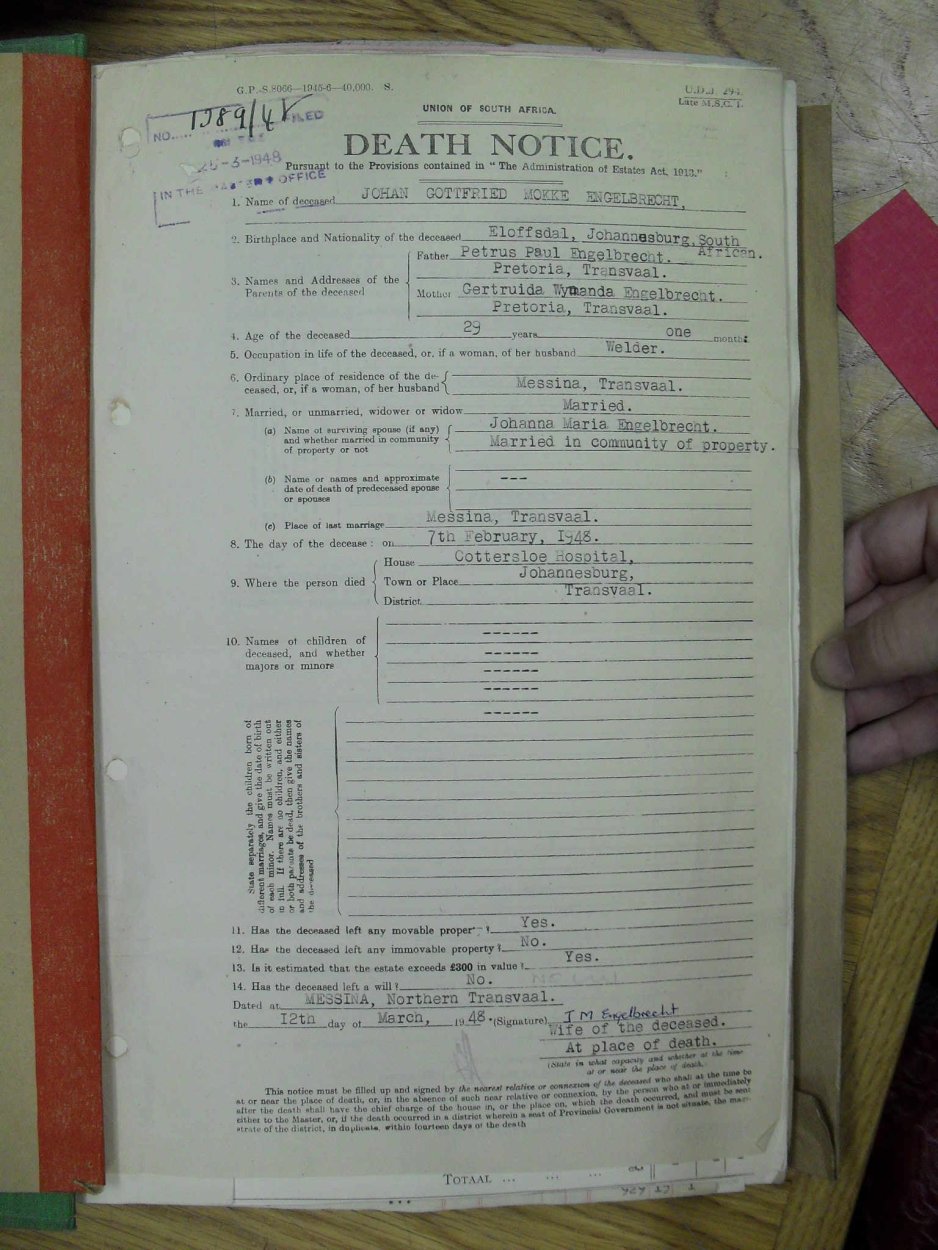 G.P.-S.8066—1945-6—40,000. S.
U.D.J. 294.
Late M.S.C. 1.
NO..... 1989/48 FILED
25-3-1948
IN THE MASTER'S OFFICE
UNION OF SOUTH AFRICA.
DEATH NOTICE.
Pursuant to the Provisions contained in "The Administration of Estates Act, 1913."
1. Name of deceased JOHAN GOTTFRIED MOKKE ENGELBRECHT,
2. Birthplace and Nationality of the deceased Eloffsdal, Johannesburg, South African.
3. Names and Addresses of the Parents of the deceased
Father Petrus Paul Engelbrecht.
Pretoria, Transvaal.
Mother Gertruida Wymanda Engelbrecht.
Pretoria, Transvaal.
4. Age of the deceased 29 years one months
5. Occupation in life of the deceased, or, if a woman, of her husband Welder.
6. Ordinary place of residence of the de-
ceased, or, if a woman, of her husband Messina, Transvaal.
7. Married, or unmarried, widower or widow Married.
(a) Name of surviving spouse (if any) Johanna Maria Engelbrecht.
and whether married in community Married in community of property.
of property or not
(b) Name or names and approximate ---
date of death of predeceased spouse
or spouses
(c) Place of last marriage Messina, Transvaal.
8. The day of the decease: on 7th February, 1948.
9. Where the person died
House Cottersloe Hospital,
Town or Place Johannesburg,
District Transvaal.
10. Names of children of
deceased, and whether
majors or minors
------
------
------
------
------
State separately the children born of
different marriages, and give the date of birth
of each minor. Names must be written out
in full. If there are no children, and either
or both parents be dead, then give the names
and addresses of the brothers and sisters of
the deceased
11. Has the deceased left any movable property? Yes.
12. Has the deceased left any immovable property? No.
13. Is it estimated that the estate exceeds £300 in value? Yes.
14. Has the deceased left a will? No.
Dated at MESSINA, Northern Transvaal.
the 12th day of March, 1948 *(Signature) J M Engelbrecht
Wife of the deceased.
At place of death.
(State in what capacity and whether at the time
at or near the place of death.
This notice must be filled up and signed by the nearest relative or connexion of the deceased who shall at the time be
at or near the place of death, or, in the absence of such near relative or connexion, by the person who at or immediately
after the death shall have the chief charge of the house in, or the place on, which the death occurred, and must be sent
either to the Master, or, if the death occurred in a district wherein a seat of Provincial Government is not situate, the magi-
strate of the district, in duplicate, within fourteen days of the death
TOTAAL ... ... ...